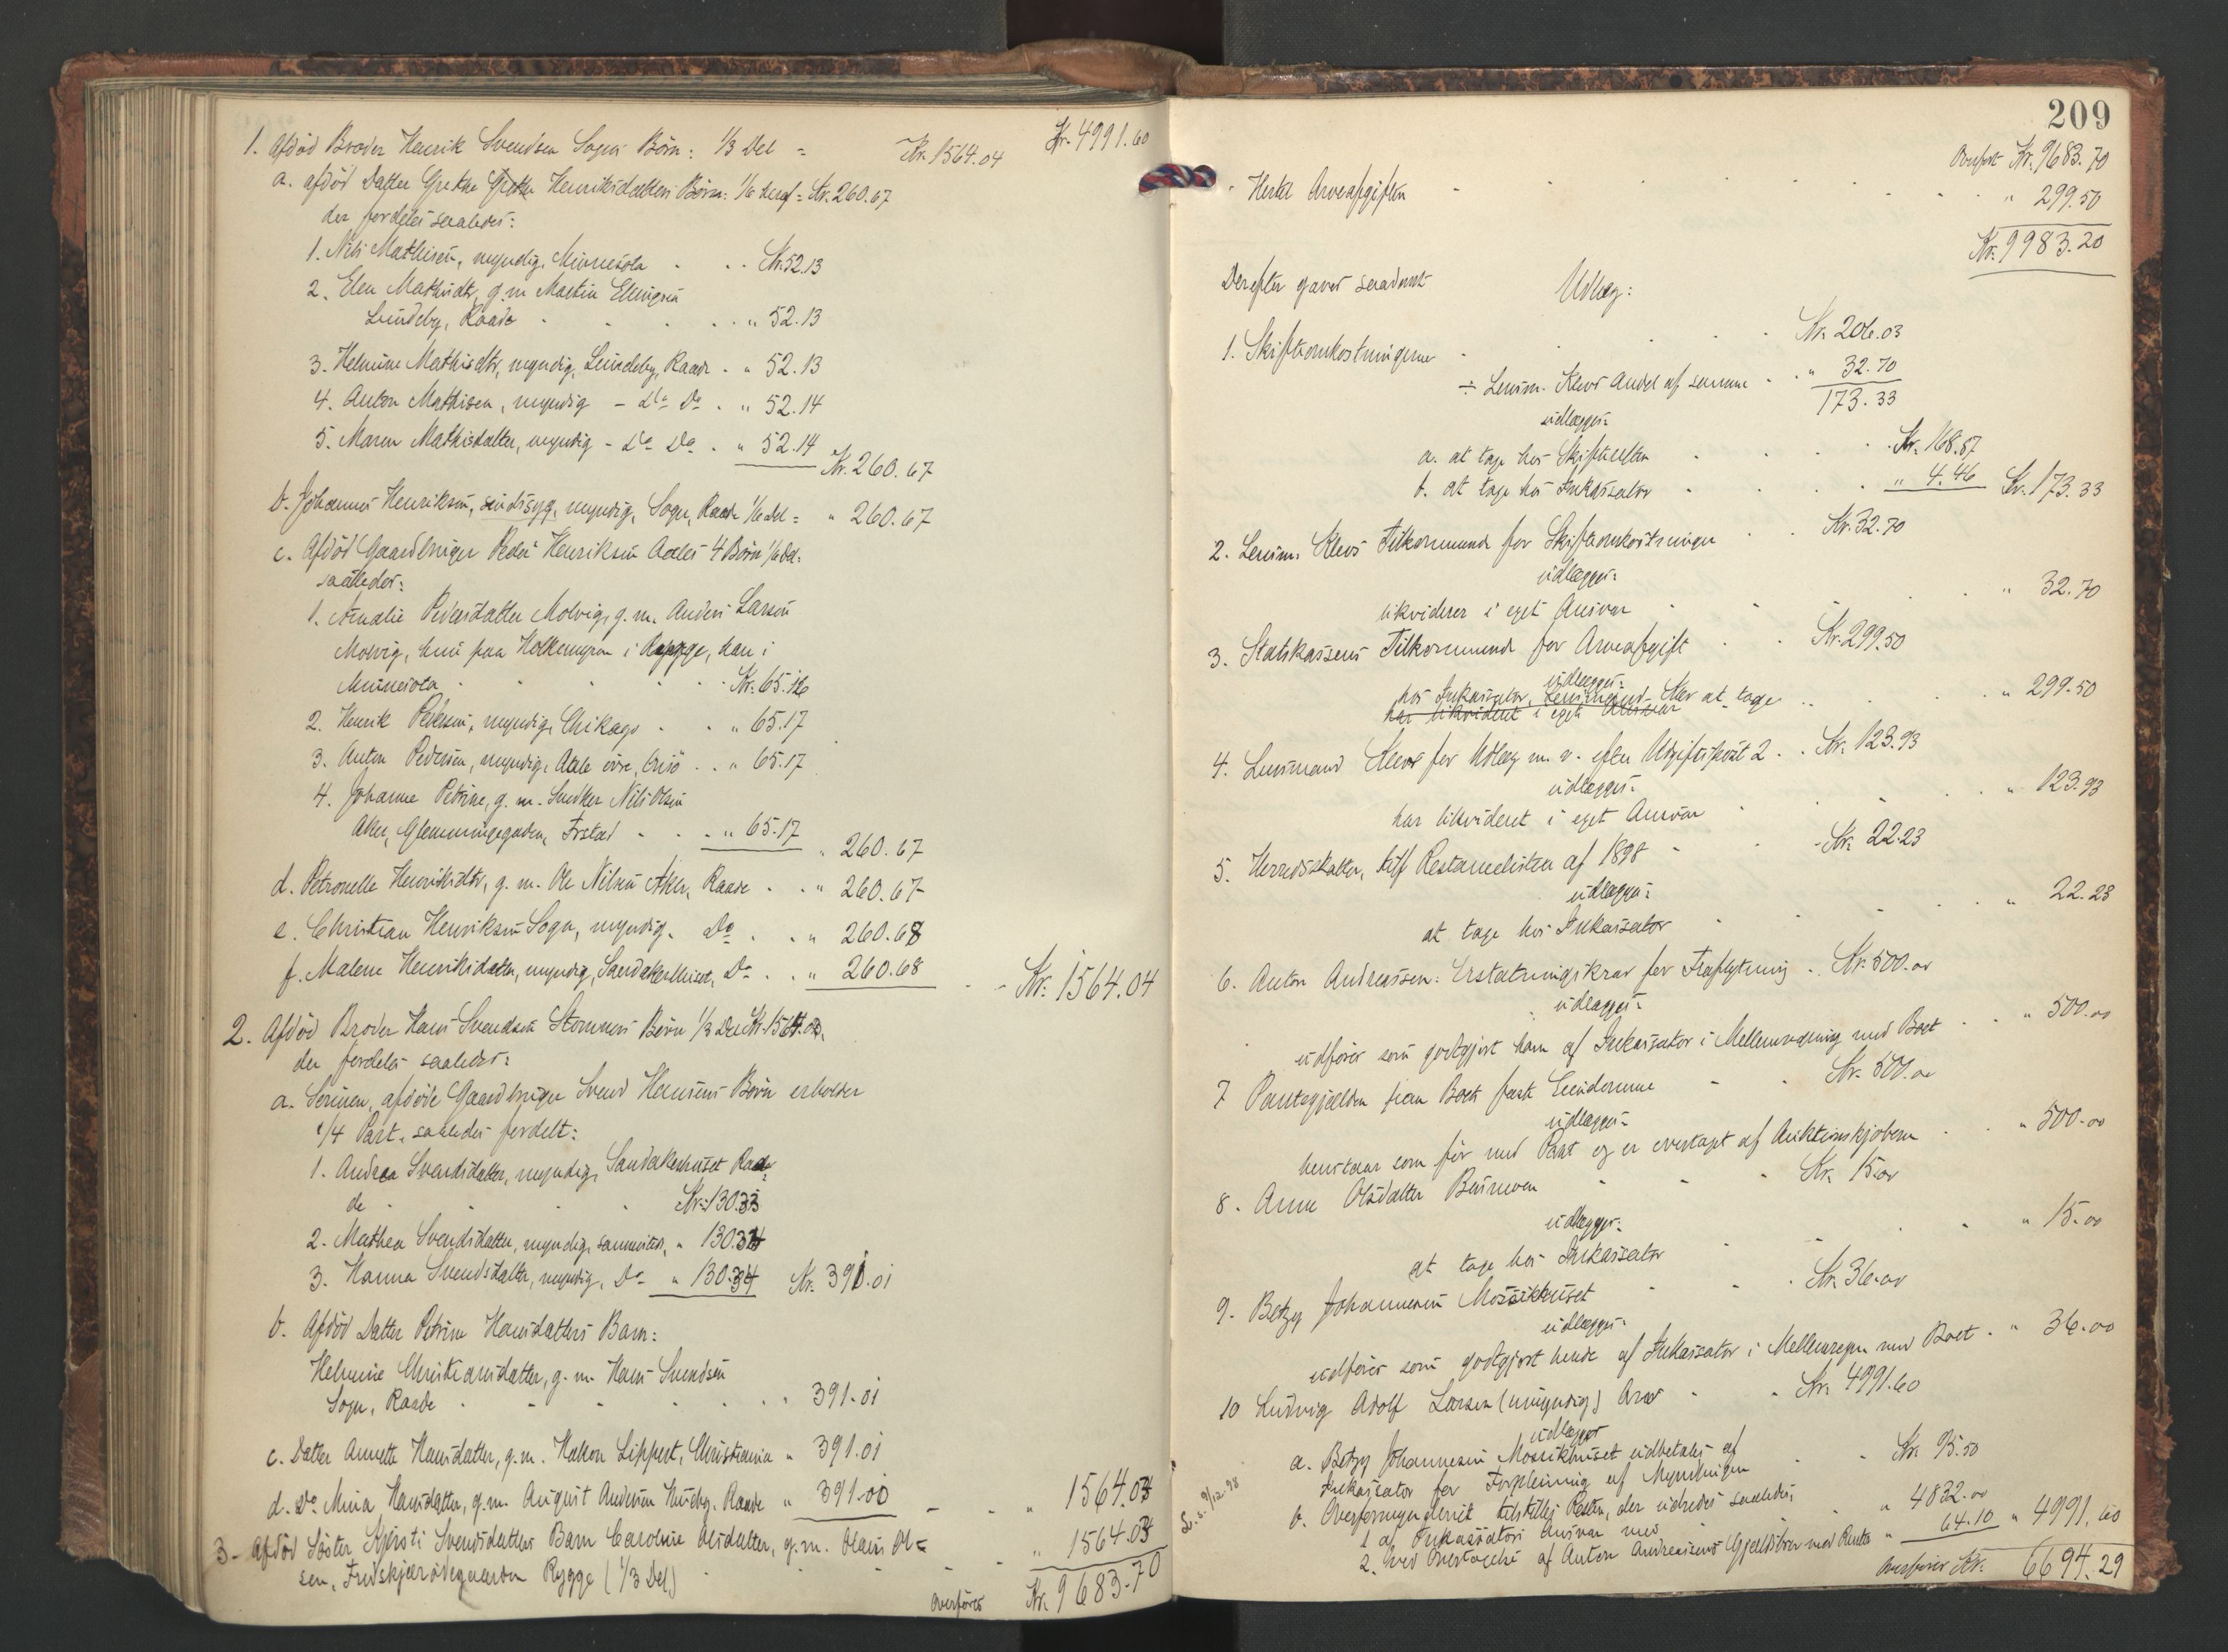 Kr. 4991.60
1. Afdöd Broder Henrik Svendsen Sogns Börn: 1/3 Del = Kr. 1564.04
a. afdöd Datter Grethe Henriksdatters Börn: 1/6 heraf = Kr. 260.67
der fordeles saaledes:
1. Nils Mathisen, myndig, Minnesota . . . Kr. 52.13
2. Elen Mathisdtr, g. m. Martin Ellingsen
Lundeby, Raade . . . . " 52.13
3. Helmine Mathisdtr, myndig, Lundeby, Raade . " 52.13
4. Anton Mathisen, myndig - Do Do . " 52.14
5. Maren Mathisdatter, myndig - Do Do . " 52.14 Kr. 260.67
b. Johannes Henriksen, sindssyg, myndig, Sogn, Raade 1/6 Del = " 260.67
c. Afdöd Gaardbruger Peder Henriksen Aales 4 Börn 1/6 Del.
saaledes:
1. Amalie Pedersdatter Molvig, g. m. Anders Larsen
Molvig, hun paa i Rygge, han i
Minnesota . . . . . Kr. 65.16
2. Henrik Pedersen, myndig, Chikago . . " 65.17
3. Anton Pedersen, myndig, Aale övre, Onsö . . " 65.17
4. Johanne Petrine, g. m. Snedker Nils Olsen
Aker, Glemmingegaden, Frstad . . . " 65.17 " 260.67
d. Petronelle Henriksdtr, g. m. Ole Nilsen Aker, Raade . . " 260.67
e. Christian Henriksen Sogn, myndig. Do . . " 260.68
f. Malene Henriksdatter, myndig, Sandakerhuset, Do . . " 260.68 - - Kr. 1564.04
2. Afdöd Broder Hans Svendsen Stomners Börn 1/3 Del Kr. 1564.03,
der fordeles saaledes:
a. Sönnen, afdöde Gaardbruger Svend Hansens Börn erholder
1/4 Part, saaledes fordelt:
1. Andrea Svendsdatter, myndig, Sandakerhuset Raa=
de . . . . Kr. 130.33
2. Mathea Svendsdatter, myndig, sammesteds, " 130.34
3. Hanna Svendsdatter, myndig, Do " 130.34 Kr. 391.01
b. Afdöd Datter Petrine Hansdatters Barn:
Helmine Christiansdatter, g. m. Hans Svendsen
Sogn, Raade . . . . . " 391.01
c. Datter Annette Hansdatter, g. m. Hakon Lippert, Christiania " 391.01
d. Do Mina Hansdatter, g. m. August Andersen Huseby, Raade " 391.00 - - " 1564.03
3. Afdöd Söster Kjersti Svendsdatters Barn Caroline Olsdatter, g. m. Olaus Ol= " 1564.03
sen, Fredskjærödegaarden Rygge (1/3 Del)
Overföres Kr. 9683.70
209
Overfört Kr. 9683.70
Hertil Arveafgiften - - - . . . " 299.50
Kr. 9983.20
Derefter gaves saadant
Udlæg:
1. Skifteomkostningerne . . . . Kr. 206.03
÷ Lensm. Klevs Andel af samme . . " 32.70
173.33
udlægges:
a. at tage hos Skifteretten . . . . Kr. 168.87
b. at tage hos Inkassator . . . . " 4.46 Kr. 173.33
2. Lensm. Klevs Tilkommende for Skifteomkostninger . . Kr. 32.70
udlægges:
likviderer i eget Ansvar . . . . " 32.70
3. Statskassens Tilkommende for Arveafgift . . Kr. 299.50
udlægges:
hos Inkassator, Lensmand Klev at tage . . " 299.50
har likvideret i eget Ansvar
4. Lensmand Klevs for Udlæg m. v. efter Udgiftspost 2 . . Kr. 123.93
udlægges:
har likvideret i eget Ansvar . . . " 123.93
5. Herredsskatter, tilf Restanceliste af 1898 . . Kr. 22.23
udlægges:
at tage hos Inkassator . . . . " 22.23
6. Anton Andreassen: Erstatningskrav for Fraflytning . . Kr. 500.00
udlægges:
udföres som godtgjort ham af Inkassator i Mellemregning med Boet . . " 500.00
7 Pantegjælden paa Boets faste Eiendomme - . Kr. 500.00
udlægges:
henstaar som för med Pant og er overtaget af Auktionskjöberen . . " 500.00
8. Anne Olsdatter . . . Kr. 15.00
udlægges:
at tage hos Inkassator . . . . " 15.00
9. Betzy Johannesen Mossikhuset . . . Kr. 36.00
udlægges:
udföres som godtgjort hende af Inkassator i Mellemregn. med Boet . " 36.00
10 Ludvig Adolf Larsen (umyndig) Arv . . Kr. 4991.60
udlægges
a. Betzy Johannesen Mossikhuset udbetales af
Inkassator for Forpleining af Myndlingen . . Kr. 95.50
b. Overformynderiet tilstilles Resten, der udredes saaledes:
1 af Inkassators Ansvar med . . " 4832.00
2. ved Overtagelse af Anton Andreassens Gjeldsbrev med Renter " 64.10 " 4991.60
L. s. 9/12.98
Overföres Kr. 6694.29